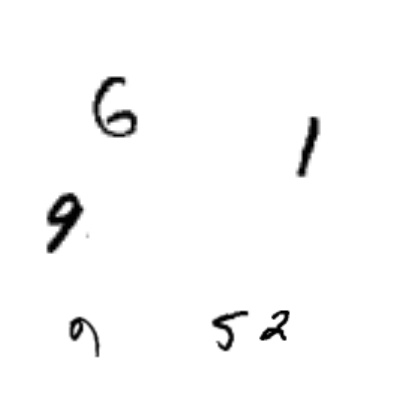 6
1
9
9 5 2